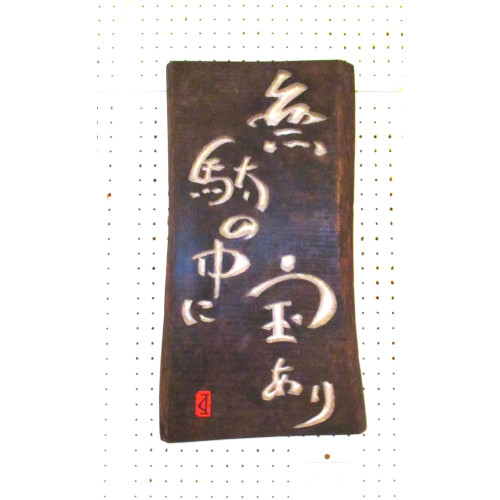 無
駄の中に
宝あり